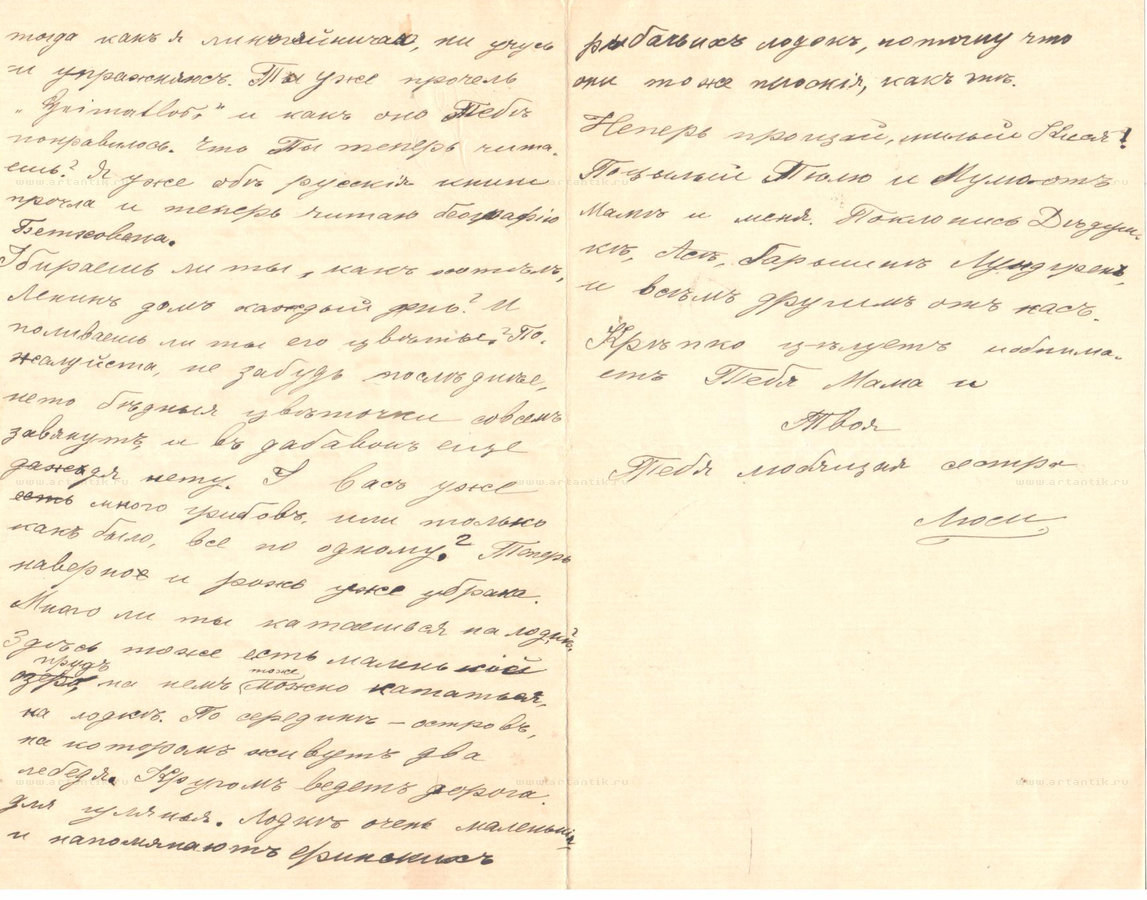 тогда какъ я , ни учусь
и упражняюсь. Ты уже прочелъ
„Heimatlos,“ и какъ оно Тебѣ
понравилось. Что Ты теперь чита-
ешь? Я уже обѣ русскія книги
прочла и теперь читаю беографію
Бетховена.
Убираешь ли ты, какъ
Ленинъ домъ каждый день? И
поливаешь ли ты его цвѣты? По-
жалуйста, не забудь послѣднее,
нето бѣдныя цвѣточки совсемъ
завянутъ, и въ дабавокъ еще
дождя нету. У васъ уже
есть много грибовъ, или только
какъ было, все по одному? Теперь
наверное и рожь уже убрана.
Много ли ты катаешься на лодкѣ?
Здѣсь тоже есть маленькой
прудъ тоже
озеро, на немъ можно кататься,
на лодкѣ. По серединѣ – островъ,
на которомъ живутъ два
лебедя. Кругомъ ведетъ дорога
для гулянья. Лодки очень маленькія,
и напоминаютъ финскихъ
рыбачьихъ лодокъ, потому что
они тоже плоскія, какъ тѣ.
Теперь прощай, милый Кися!
Поцѣлуй Тюлю и отъ
Мамы и меня. Поклонись Дѣдуш-
кѣ, Асѣ,
и всѣмъ другимъ отъ насъ.
Крѣпко цѣлуетъ и обнима-
етъ Тебя Мама и
Твоя
Тебя любящая сестра
Люси
www.artantik.ru
www.artantik.ru
www.artantik.ru
www.artantik.ru
www.artantik.ru
www.artantik.ru